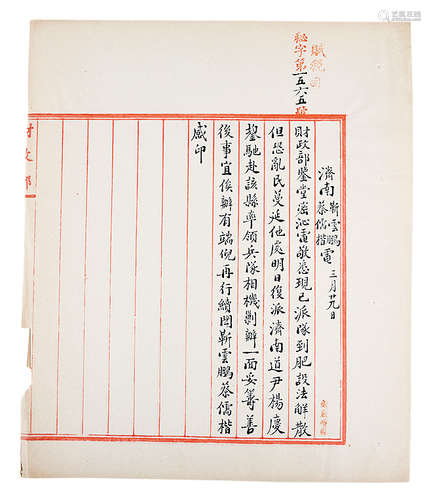 賦稅司
秘字第一五六五號
濟南靳雲鵬蔡儒楷電 三月廿九日
財政部鑒堂密沁電敬悉現已派隊到肥設法解散
但恐亂民蔓延他處明日復派濟南道尹楊慶
鋆馳赴該縣率領兵隊相機剿辦一面妥籌善
後事宜俟辦有端倪再行續聞靳雲鵬蔡儒楷
感印
財政部